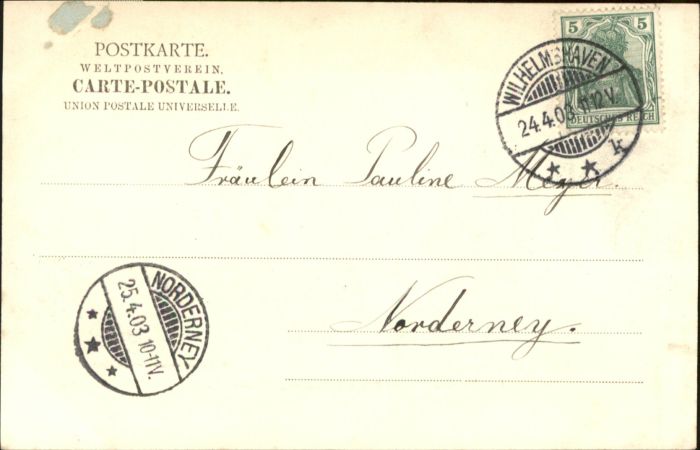 POSTKARTE.
WELTPOSTVEREIN.
CARTE-POSTALE.
UNION POSTALE UNIVERSELLE.
5 5
DEUTSCHES REICH
WILHELMSHAVEN
24.4.03 11-12V.
k
Fräulein Pauline Meyer.
Norderney.
NORDERNEY
25.4.03 10-11V.